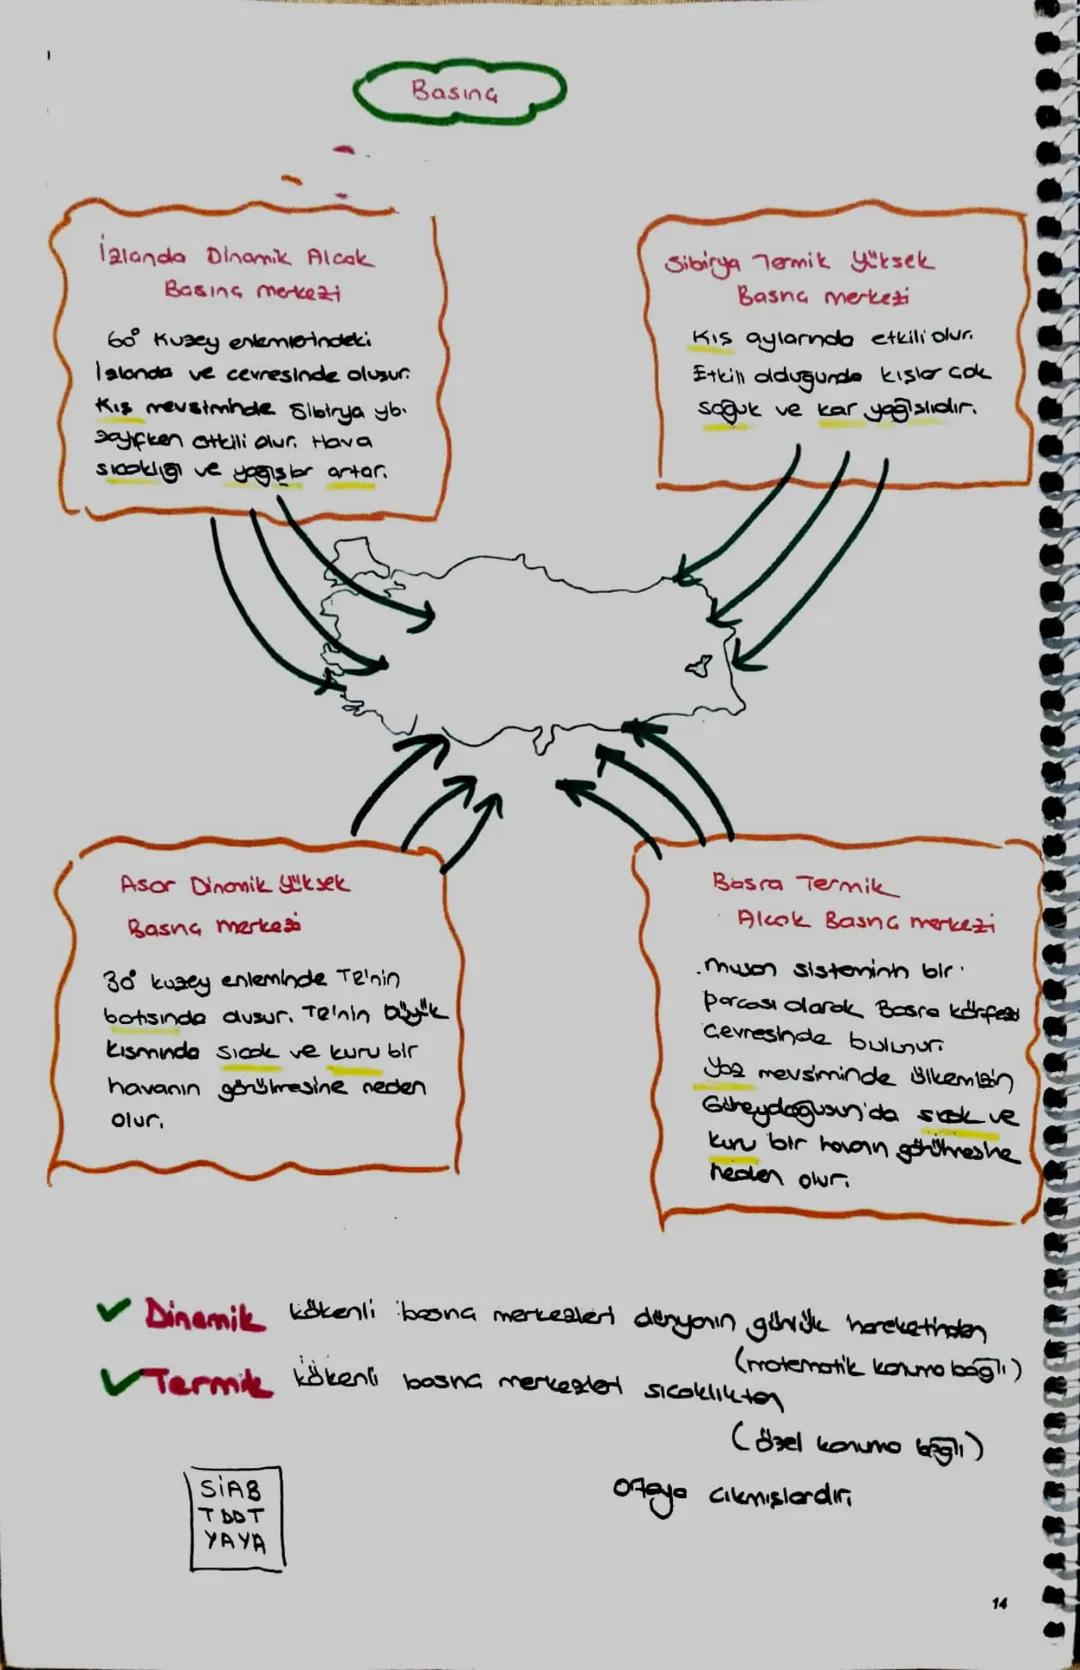 Basınç
İzlanda Dinamik Alçak
Basınç merkezi
60° Kuzey enlemlerindeki
İzlanda ve çevresinde oluşur.
Kış mevsiminde Sibirya yb.
zayıfken etkili olur. Hava
sıcaklığı ve yağışlar artar.
Sibirya Termik Yüksek
Basınç merkezi
Kış aylarında etkili olur.
Etkili olduğunda kışlar çok
soğuk ve kar yağışlıdır.
Asor Dinamik Yüksek
Basınç merkezi
30° kuzey enleminde TR'nin
batısında oluşur. TR'nin büyük
kısmında sıcak ve kuru bir
havanın görülmesine neden
olur.
Basra Termik
Alçak Basınç merkezi
.muson sisteminin bir
parçası olarak Basra körfezi
çevresinde bulunur.
Yaz mevsiminde ülkemizin
Güneydoğusun'da sıcak ve
kuru bir havanın görülmesine
neden olur.
✓ Dinamik kökenli basınç merkezleri dünyanın günlük hareketinden
(matematik konuma bağlı)
✓ Termik kökenli basınç merkezleri sıcaklıktan
(özel konuma bağlı)
ortaya çıkmışlardır.
SİAB
TDDT
YAYA
14